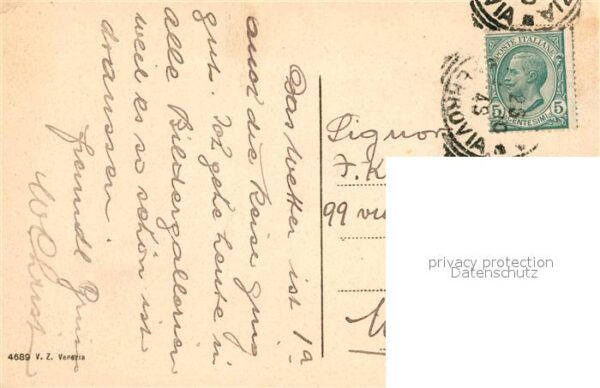 Das Wetter ist 1a
auch die Reise ging
gut. Ich gehe heute in
alle Bildergallerien
weil es so schön ist
draussen.
freundl Grüsse
W Christ
4689 V. Z. Venezia
Signor
F. K
99 via
M
POSTE ITALIANE
5 5
CENTESIMI
FERROVIA
VIA
privacy protection
Datenschutz